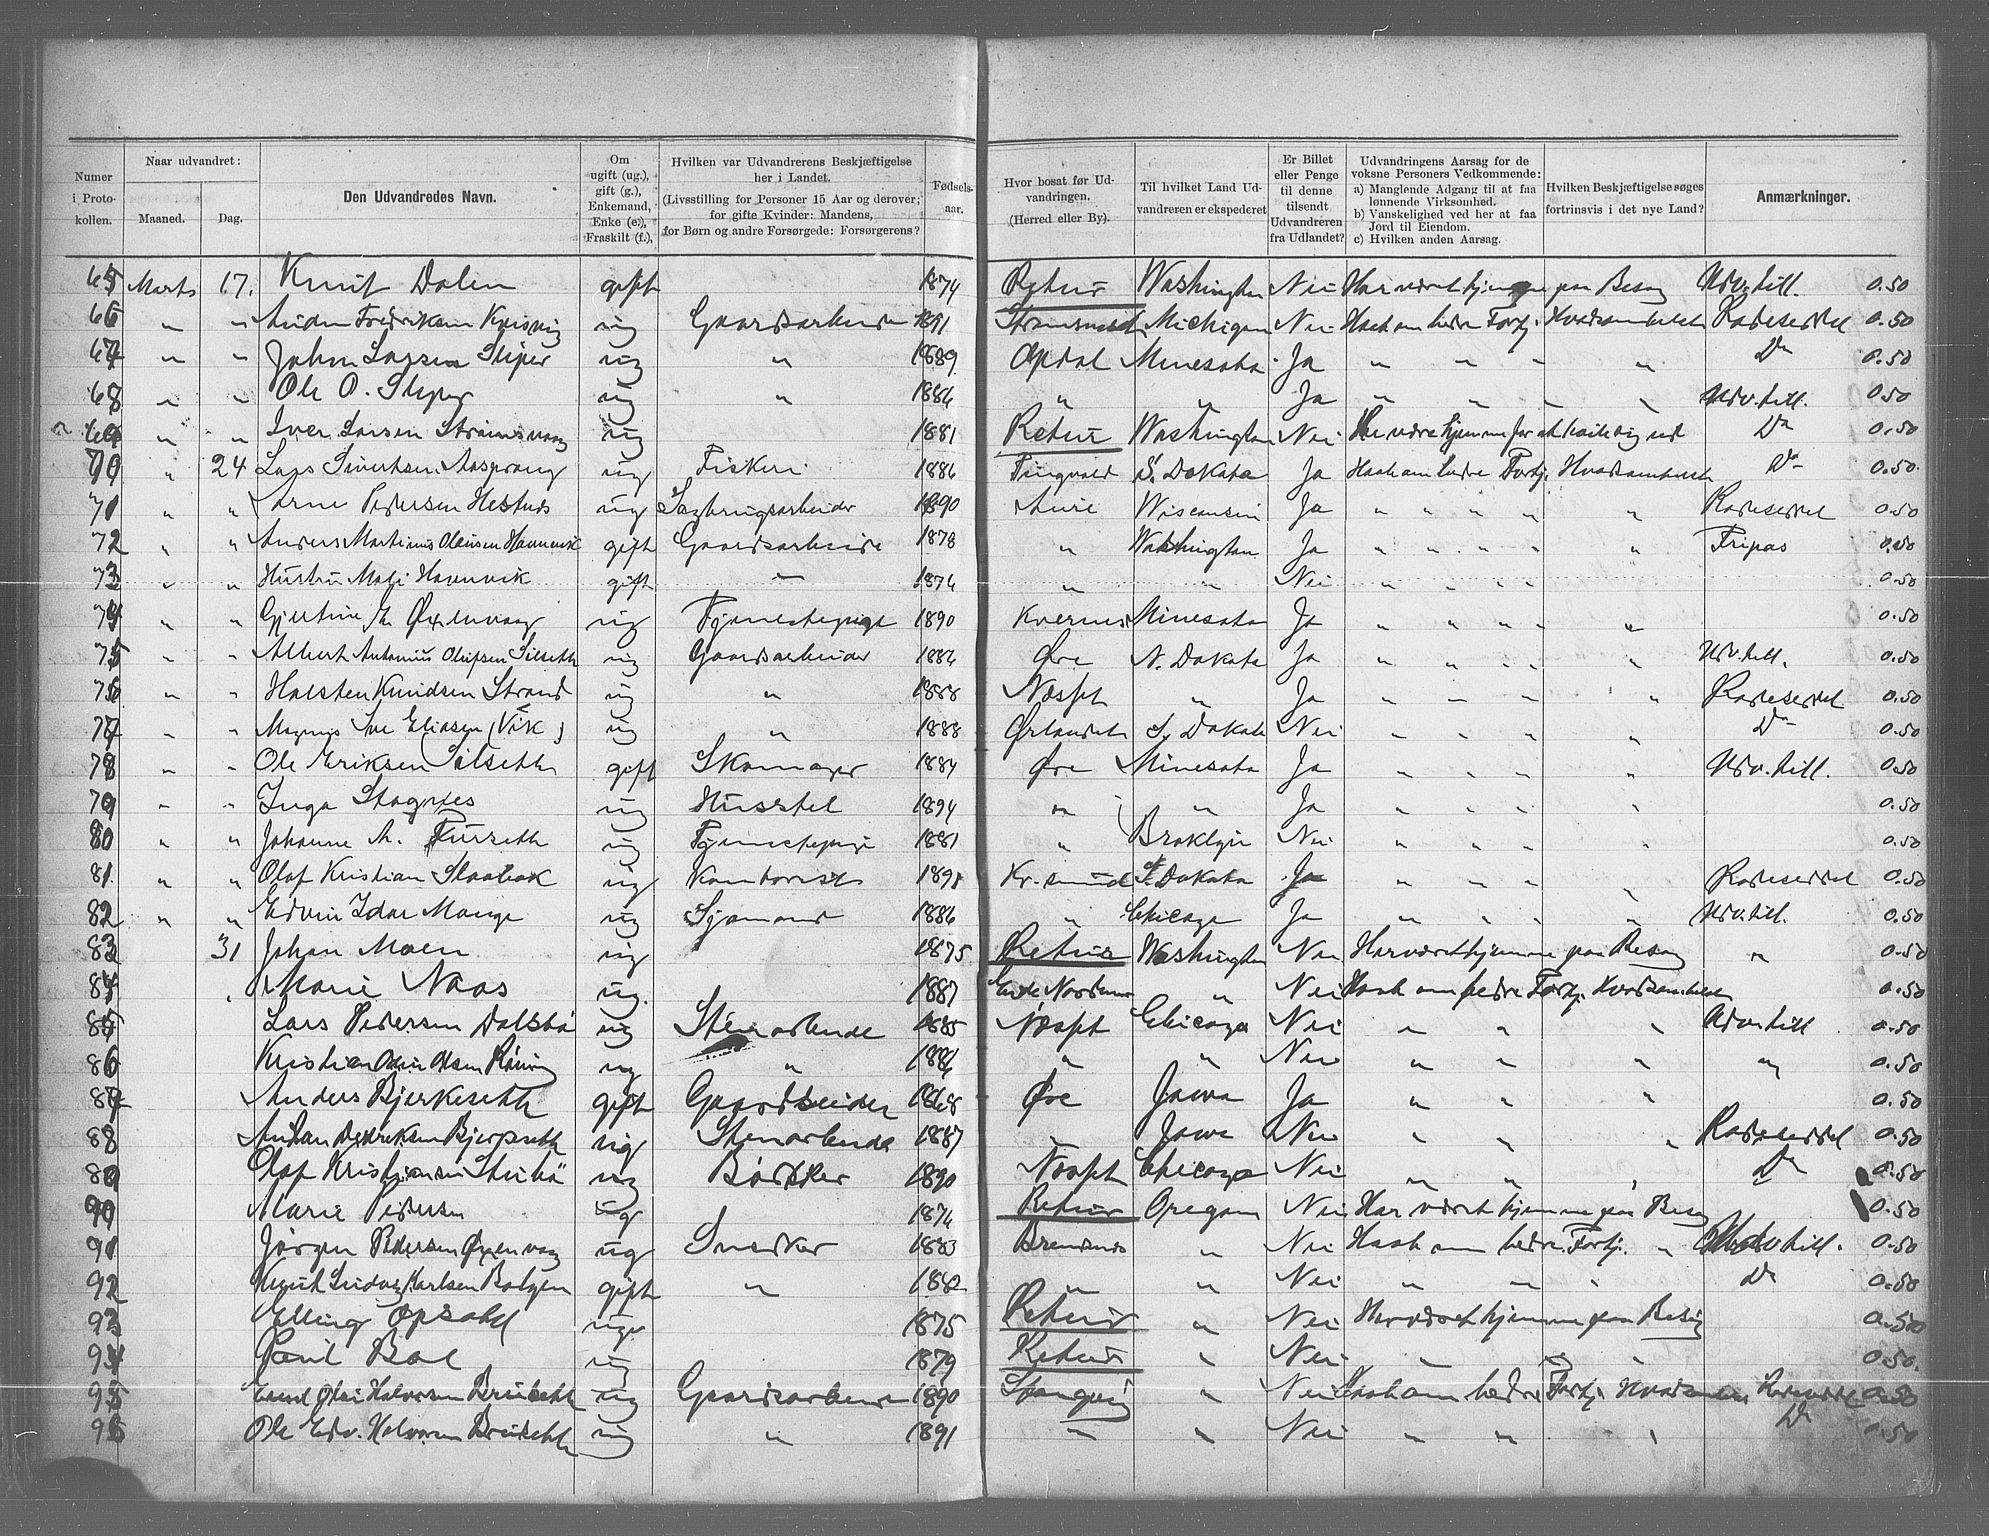 Numer i Protokollen. | Naar udvandret: Maaned. | Dag. | Den Udvandredes Navn. | Om ugift (ug.), gift (g.), Enkemand, Enke (e.), Fraskilt (f.), | Hvilken var Udvandrerens Beskjæftigelse her i Landet. (Livsstilling for Personer 15 Aar og derover; for gifte Kvinder: Mandens, for Børn og andre Forsørgede: Forsørgerens? | Fødselsaar. | Hvor bosat før Udvandringen. (Herred eller By). | Til hvilket Land Udvandreren er ekspederet | Er Billet eller Penge til denne tilsendt Udvandreren fra Udlandet? | Udvandringens Aarsag for de voksne Personers Vedkommende: a) Manglende Adgang til at faa lønnende Virksomhed. b) Vanskelighed ved her at faa Jord til Eiendom. c) Hvilken anden Aarsag. | Hvilken Beskjæftigelse søges fortrinsvis i det nye Land? | Anmærkninger.
65 Marts 17. Knut Dalen gift 1874 Retur Washington Nei Har været hjemme paa Besøg Udv. till. 0.50
66 " " Fredriksen ug Gaardsarbeider 1891 Michigan Nei Haab om bedre Fortj. Hvadsomhelst Rabeseddel 0.50
67 " " John Larsen Sliper ug " 1889 Opdal Minesota Ja " " " " Do 0.50
68 " " Ole O. Sliper ug " 1886 " " Ja " " " " Udv. till. 0.50
69 " " Iver Larsen Strømsvaag ug 1881 Retur Washington Nei hjemme for at Do 0.50
70 " 24 Lars Sivertsen Aasprong ug Fisker 1886 Tingvold S. Dakota Ja Haab om bedre Fortj. Hvadsomhelst Do 0.50
71 " " Arne Pedersen Hestnes ug Sagbrugsarbeider 1890 Aure Wisconsin Ja " " " " " Rabeseddel 0.50
72 " " Anders Martinus Olausen Havnevik gift Gaardsarbeider 1878 " Washington Ja " " " " " Fripas 0.50
73 " " Hustru Mali Havnvik gift " 1874 " " Nei " " " " 0.50
74 " " Gjertine Øxenvaag ug Tjenestepige 1890 Kvernes Minesota Ja " " " " " 0.50
75 " " Albert Antonius Olufsen Silseth ug Gaardsarbeider 1886 Øre N. Dakota Ja " " " " " Udv. till. 0.50
76 " " Halsten Knudsen Strand ug " 1888 Nosset " Ja " " " " Rabeseddel 0.50
77 " " Magnus Eliasen (Vik) ug " 1888 Ørlandet S. Dakota Nei " " " " Do 0.50
78 " " Ole Eriksen Silseth gift Skomager 1884 Øre Minesota Ja " " " " Udv. till. 0.50
79 " " Inga Stagnes ug Husstel 1894 " " Ja " " " " 0.50
80 " " Johanne A. Furseth ug Tjenestepige 1881 " Broklyn Nei " " " " 0.50
81. " " Olaf Kristian ug Kontorist 1891 Kr. sund S. Dakota Ja " " " " Rabeseddel 0.50
82 " " Edvin Idar Mauge ug Sjømand 1886 " Chicago Ja " " " " Udv. till. 0.50
83 31 Johan Moen ug 1875 Retur Washington Nei Har været hjemme paa Besøg " 0.50
84 " Marie Naas ug. 1887 " Nei Haab om bedre Fortj. Hvadsomhelst 0.50
85 Lars Pedersen Dalsbø ug Stenarbeider 1885 Nosset Chicago Nei " " " Udv. till 0.50
86 Kristian Olsen ug " 1886 " " Nei " " " " 0.50
87 Anders Bjerkeseth gift Gaardbeider 1868 Øre Jowa Ja " " " 0.50
88 ug Stenarbeider 1887 " Jowa Nei " " " Rabeseddel 0.50
89 Olaf Kristiansen Stubø ug Bødkker 1890 Nosset Chicago Nei " " Do 0.50
90 Marie Pedersen ug 1874 Retur Oregon Nei Har været hjemme paa Besøg 0.50
91 Jørgen Pedersen Øxenvaag ug Snedker 1883 Bremsnes " Nei Haab om bedre Fortj. " Udv. till. 0.50
92 Knut Ludvig Karlsen Bolgen gift " 1882 " " Nei " " " Do 0.50
93 Elling Opsahl ug 1875 Retur " Nei Har været hjemme paa Besøg 0.50
94 Paul Boe ug 1879 Retur " Nei " " " 0.50.
95 Halvorsen Bruseth ug Gaardsarbeider 1890 Stangvig " Nei Haab om bedre Fortj. Rabeseddel 0.50
96 Ole Edv. Halvorsen Bruseth ug " 1891 " " Nei " " " Do 0.50